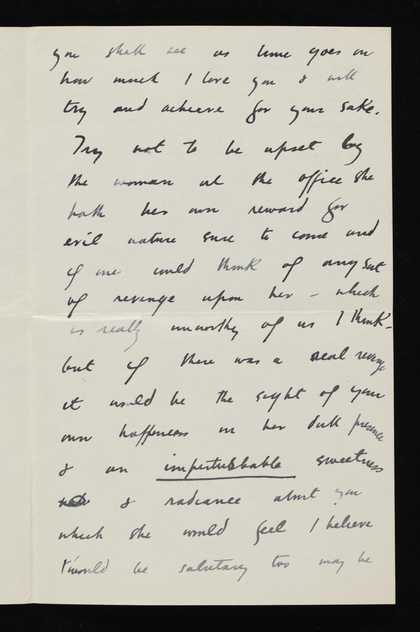 you shall see as time goes on
how much I love you & will
try and achieve for your sake.
Try not to be upset by
the woman at the office she
hath her own reward for
evil nature sure to come and
if one could think of any sort
of revenge upon her – which
is really unworthy of us I think –
but if there was a real revenge
it would be the sight of your
own happiness in her dull presence
& an imperturbable sweetness
& radiance about you
which she would feel I believe
t'would be salutary too may be